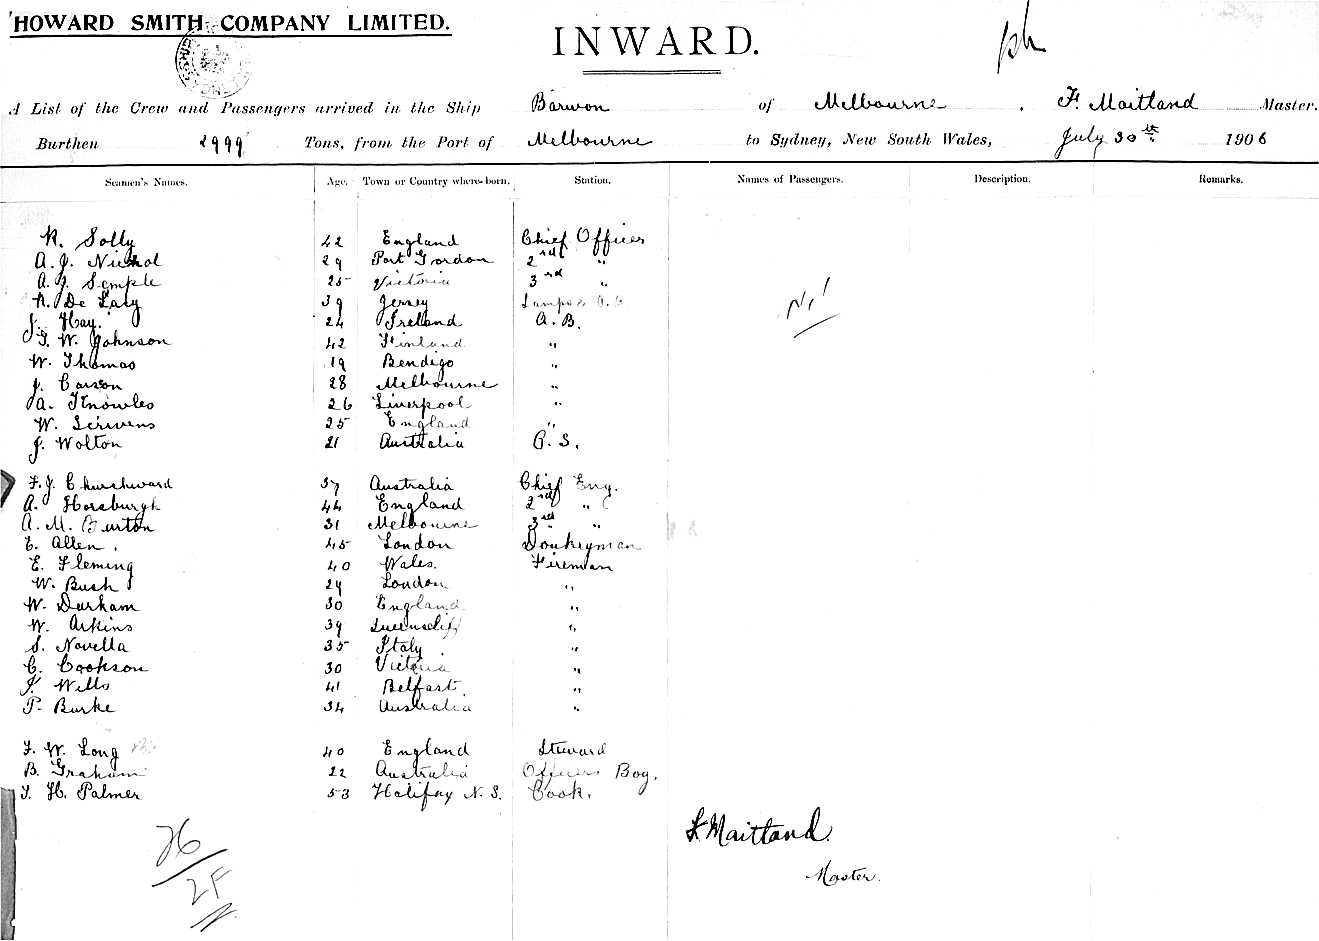 HOWARD SMITH COMPANY LIMITED.
INWARD.
A List of the Crew and Passengers arrived in the Ship Barwon of Melbourne, F. Maitland Master.
Burthen 2999 Tons, from the Port of Melbourne to Sydney, New South Wales, July 30th 1906
Seamen's Names. Age. Town or Country where born. Station. Names of Passengers. Description. Remarks.
R. Solly 42 England Chief Officer
A. J. Nichol 29 Port Gordon 2nd "
A. J. Semple 25 Victoria 3rd "
39 Jersey Lamps & A.B
J. Hay. 24 Ireland A.B.
Nil
J. W. Johnson 42 Finland "
W. Thomas 19 Bendigo "
J. Carson 28 Melbourne "
A. Knowles 26 Liverpool "
W. Scrivens 25 England "
J. Wolton 21 Australia O.S.
F. J. Churchward 37 Australia Chief Eng.
A. Horsburgh 44 England 2nd "
A. M. Burton 31 Melbourne 3rd "
E. Allen. 45 London Donkeyman
E. Fleming 40 Wales. Fireman
W. Bush 29 London "
W. Durham 30 England "
W. Arkins 39 Queenscliff "
S. Novella 35 Italy. "
C. Cookson 30 Victoria "
J. Wills 41 Belfast. "
P. Burke 34 Australia "
F. W. Long 40 England Steward
B. Graham 22 Australia Officers Boy.
J. H. Palmer 53 Halifax N.S. Cook.
F Maitland.
Master.
26
2F